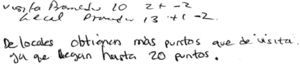 visita Promedio 10 2+ -2
Local Promedio 13 +1 -2.
De locales obtienen más puntos que de visita.
ya que llegan hasta 20 puntos.